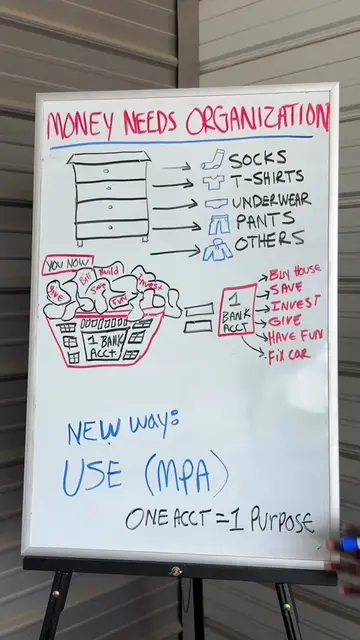 MONEY NEEDS ORGANIZATION
SOCKS
T-SHIRTS
UNDERWEAR
PANTS
OTHERS
YOU NOW
Give
Bill
Build
Save
Invest
1 BANK ACCT
=
1 BANK ACCT
BUY HOUSE
SAVE
INVEST
GIVE
HAVE FUN
FIX CAR
NEW WAY:
USE (MPA)
ONE ACCT = 1 PURPOSE